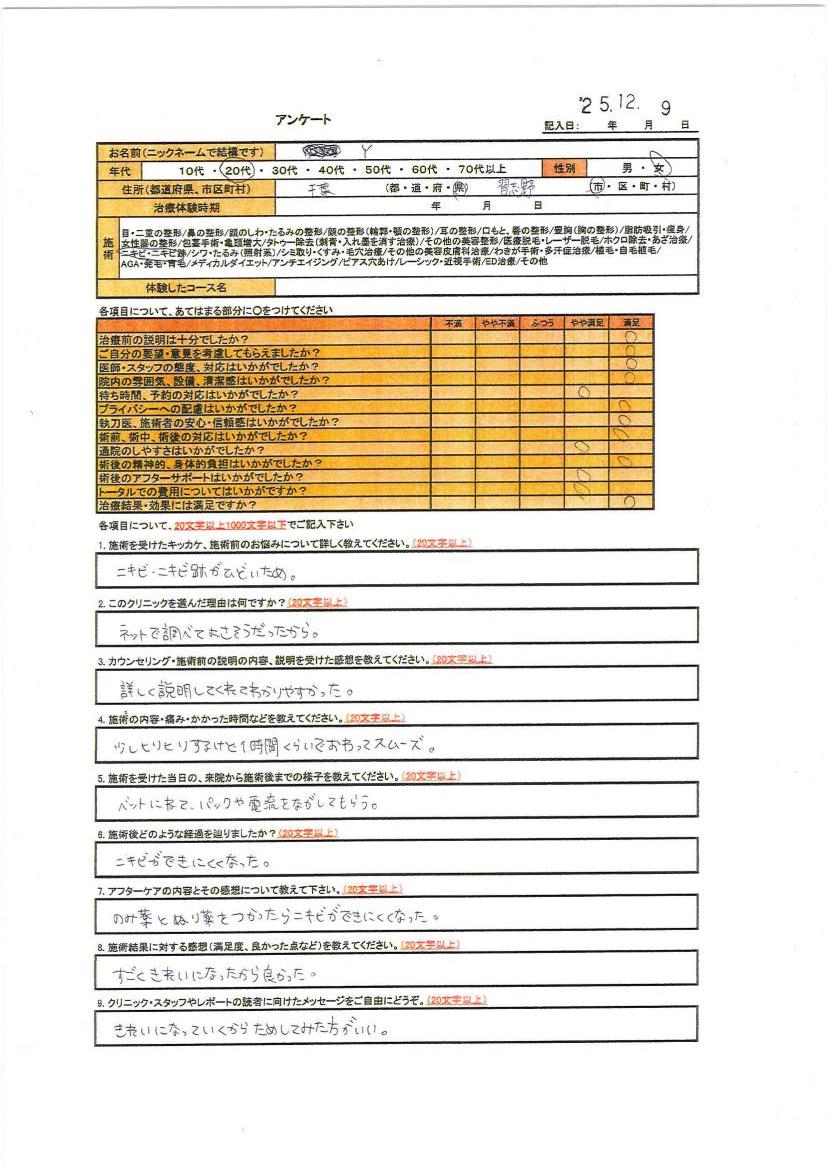 '25. 12. 9
アンケート
記入日: 年 月 日
お名前(ニックネームで結構です) Y
年代 10代 ・ 20代 ・ 30代 ・ 40代 ・ 50代 ・ 60代 ・ 70代以上 性別 男 ・ 女
住所(都道府県、市区町村) 千葉 (都・道・府・県) 習志野 (市・区・町・村)
治療体験時期 年 月 日
施術
目・二重の整形/鼻の整形/顔のしわ・たるみの整形/顔の整形(輪郭・顎の整形)/耳の整形/口もと、唇の整形/豊胸(胸の整形)/脂肪吸引・痩身/
女性器の整形/包茎手術・亀頭増大/タトゥー除去(刺青・入れ墨を消す治療)/その他の美容整形/医療脱毛・レーザー脱毛/ホクロ除去・あざ治療/
ニキビ・ニキビ跡/シワ・たるみ(照射系)/シミ取り・くすみ・毛穴治療/その他の美容皮膚科治療/わきが手術・多汗症治療/植毛・自毛植毛/
AGA・発毛・育毛/メディカルダイエット/アンチエイジング/ピアス穴あけ/レーシック・近視手術/ED治療/その他
体験したコース名
各項目について、あてはまる部分に〇をつけてください
不満 やや不満 ふつう やや満足 満足
治療前の説明は十分でしたか?
ご自分の要望・意見を考慮してもらえましたか?
医師・スタッフの態度、対応はいかがでしたか?
院内の雰囲気、設備、清潔感はいかがでしたか?
待ち時間、予約の対応はいかがでしたか?
プライバシーへの配慮はいかがでしたか?
執刀医、施術者の安心・信頼感はいかがでしたか?
術前、術中、術後の対応はいかがでしたか?
通院のしやすさはいかがでしたか?
術後の精神的、身体的負担はいかがでしたか?
術後のアフターサポートはいかがでしたか?
トータルでの費用についてはいかがですか?
治療結果・効果には満足ですか?
各項目について、20文字以上1000文字以下でご記入下さい
1. 施術を受けたキッカケ、施術前のお悩みについて詳しく教えてください。(20文字以上)
ニキビ・ニキビ跡がひどいため。
2. このクリニックを選んだ理由は何ですか?(20文字以上)
ネットで調べてよさそうだったから。
3. カウンセリング・施術前の説明の内容、説明を受けた感想を教えてください。(20文字以上)
詳しく説明してくれてわかりやすかった。
4. 施術の内容・痛み・かかった時間などを教えてください。(20文字以上)
少しヒリヒリするけど1時間くらいでおわってスムーズ。
5. 施術を受けた当日の、来院から施術後までの様子を教えてください。(20文字以上)
ベットにねて、パックや電流をながしてもらう。
6. 施術後どのような経過を辿りましたか?(20文字以上)
ニキビができにくくなった。
7. アフターケアの内容とその感想について教えて下さい。(20文字以上)
のみ薬とぬり薬をつかったらニキビができにくくなった。
8. 施術結果に対する感想(満足度、良かった点など)を教えてください。(20文字以上)
すごくきれいになったから良かった。
9. クリニック・スタッフやレポートの読者に向けたメッセージをご自由にどうぞ。(20文字以上)
きれいになっていくからためしてみた方がいい。